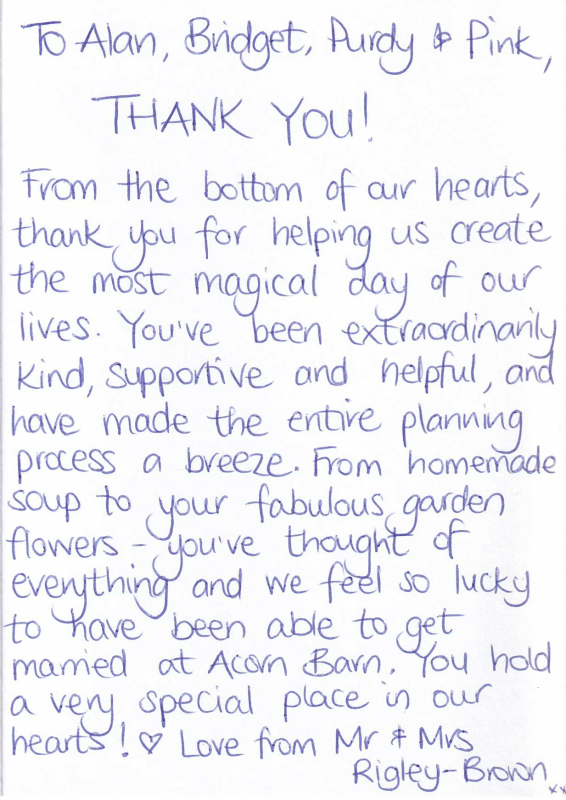 To Alan, Bridget, Purdy & Pink,
THANK YOU!
From the bottom of our hearts,
thank you for helping us create
the most magical day of our
lives. You've been extraordinarily
kind, supportive and helpful, and
have made the entire planning
process a breeze. From homemade
soup to your fabulous garden
flowers - you've thought of
everything and we feel so lucky
to have been able to get
married at Acorn Barn. You hold
a very special place in our
hearts! ♡ Love from Mr & Mrs
Rigley-Brown
xx